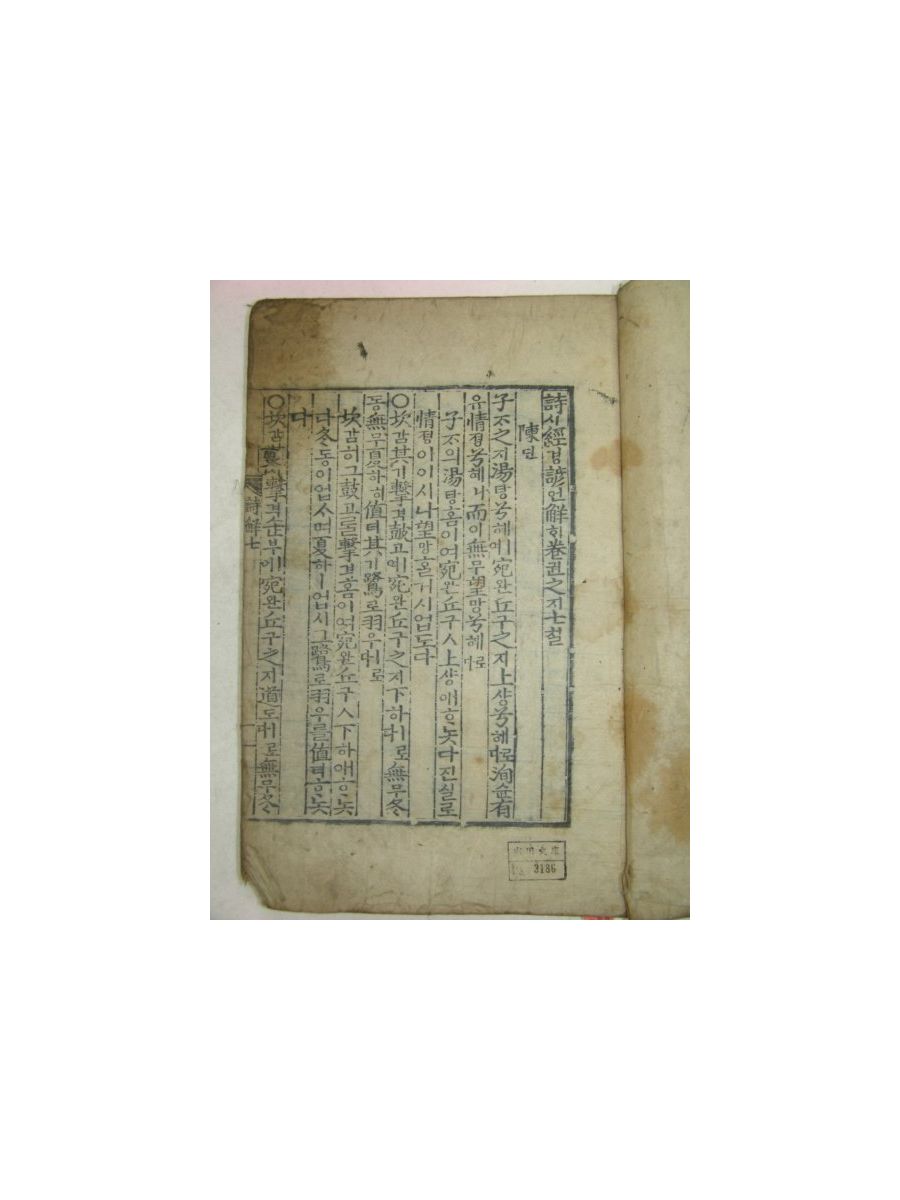 詩시經경諺언解ᄒᆡ卷권之지七칠
陳딘
子ᄌᆞ之지湯탕兮혜여宛완丘구之지上샹兮혜로다洵슌有
유情졍兮혜나而이無무望망兮혜로다
子ᄌᆞ의湯탕홈이여宛완丘구ㅅ上샹애ᄒᆞᄂᆞᆺ다진실로
情졍이이시나望망홀거시업도다
○坎감其기擊격鼓고여宛완丘구之지下하ㅣ로다無무冬
동無무夏하히値티其기鷺로羽우ㅣ로다
坎감히그鼓고를擊격홈이여宛완丘구ㅅ下하애ᄒᆞᄂᆞᆺ
다冬동이업ㅅ며夏하ㅣ업시그鷺로羽우를値티ᄒᆞᄂᆞᆺ
다
○坎감其기擊격缶부여宛완丘구之지道도ㅣ로다無무冬
詩解七
一
文庫
3186